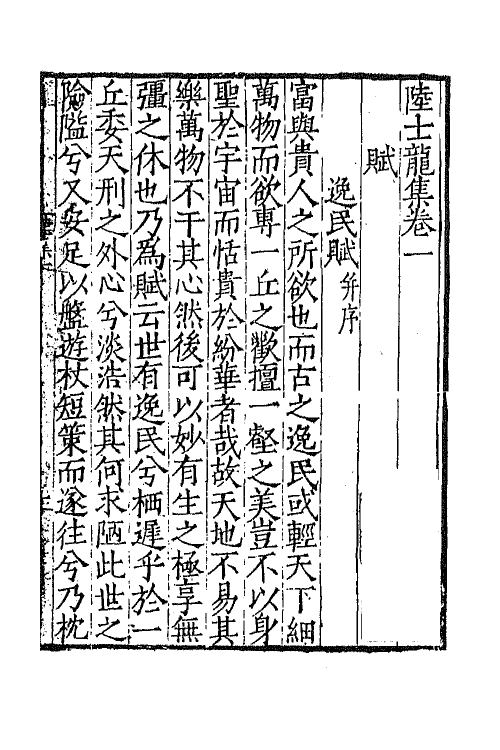 陸士龍集卷一
賦
逸民賦并序
富與貴人之所欲也而古之逸民或輕天下細
萬物而欲專一丘之歡擅一壑之美豈不以身
聖於宇宙而恬貴於紛華者哉故天地不易其
樂萬物不干其心然後可以妙有生之極享無
彊之休也乃為賦云世有逸民兮栖遲乎於一
丘委天刑之外心兮淡浩然其何求陋此世之
險隘兮又安足以盤遊杖短策而遂往兮乃枕